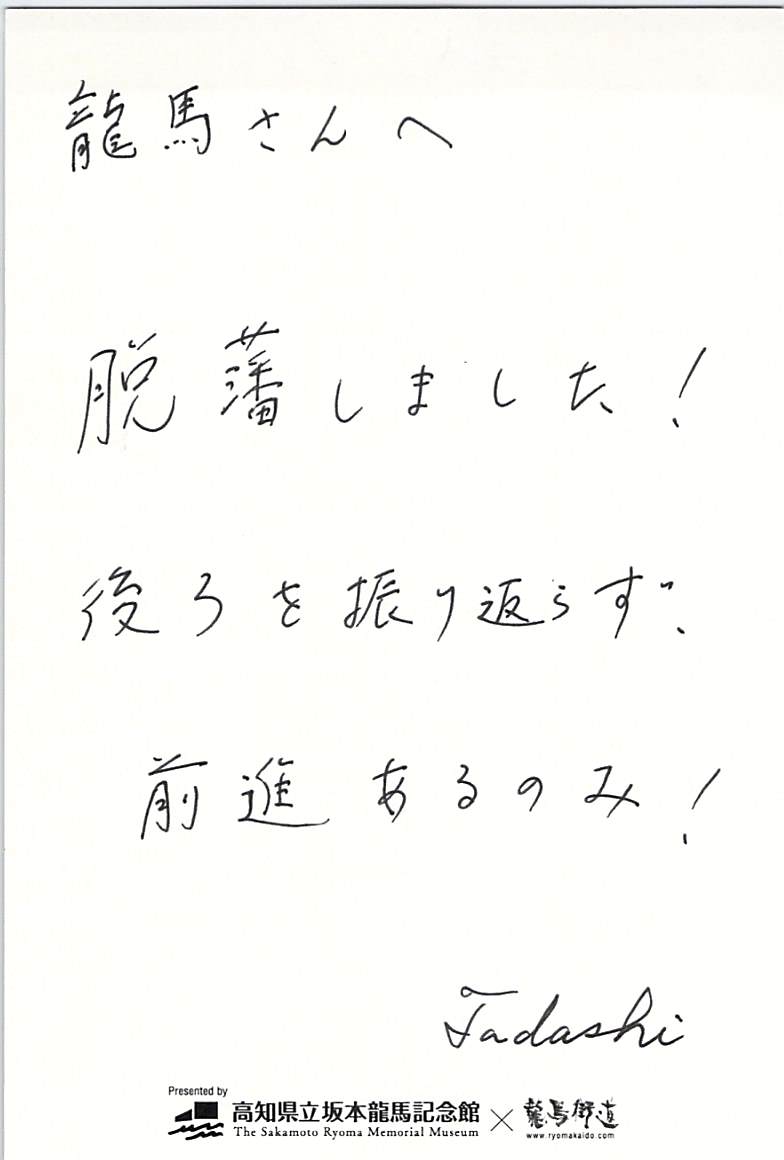 龍馬さんへ
脱藩しました!
後ろを振り返らず、
前進あるのみ!
Tadashi
Presented by
高知県立坂本龍馬記念館 × 龍馬街道
The Sakamoto Ryoma Memorial Museum www.ryomakaido.com